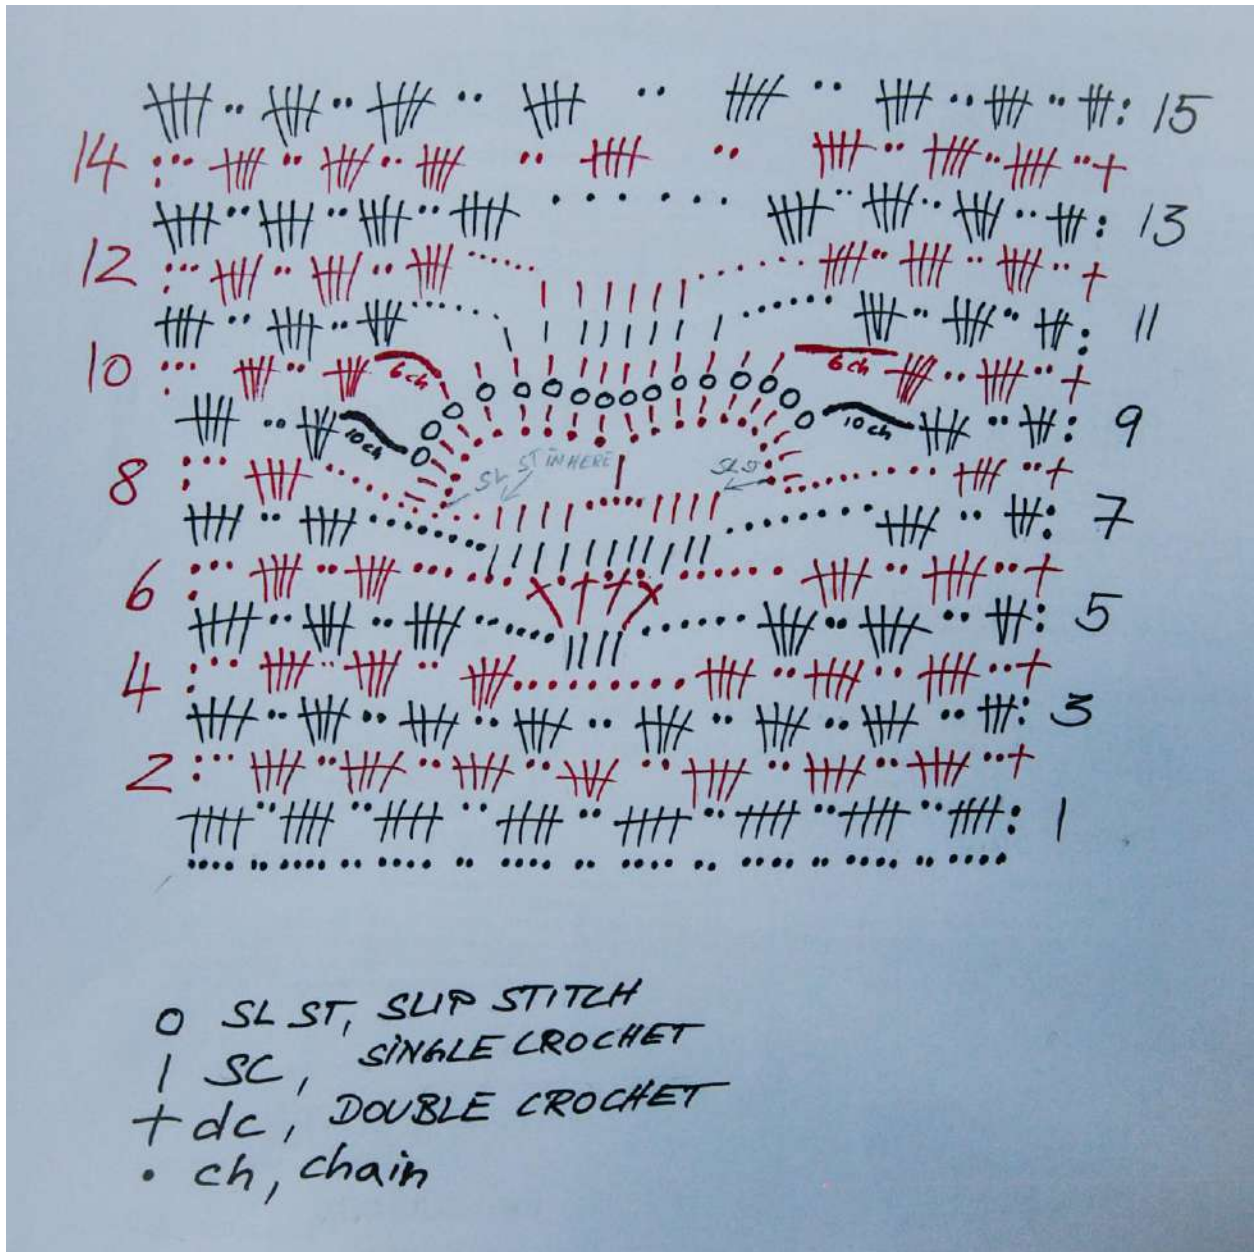 15
14
13
12
11
10 6 ch 6 ch
10 ch 10 ch 9
SL ST IN HERE SL ST
8
7
6
5
4
3
2
1
O SL ST, SLIP STITCH
| SC, SINGLE CROCHET
+ dc, DOUBLE CROCHET
• ch, chain